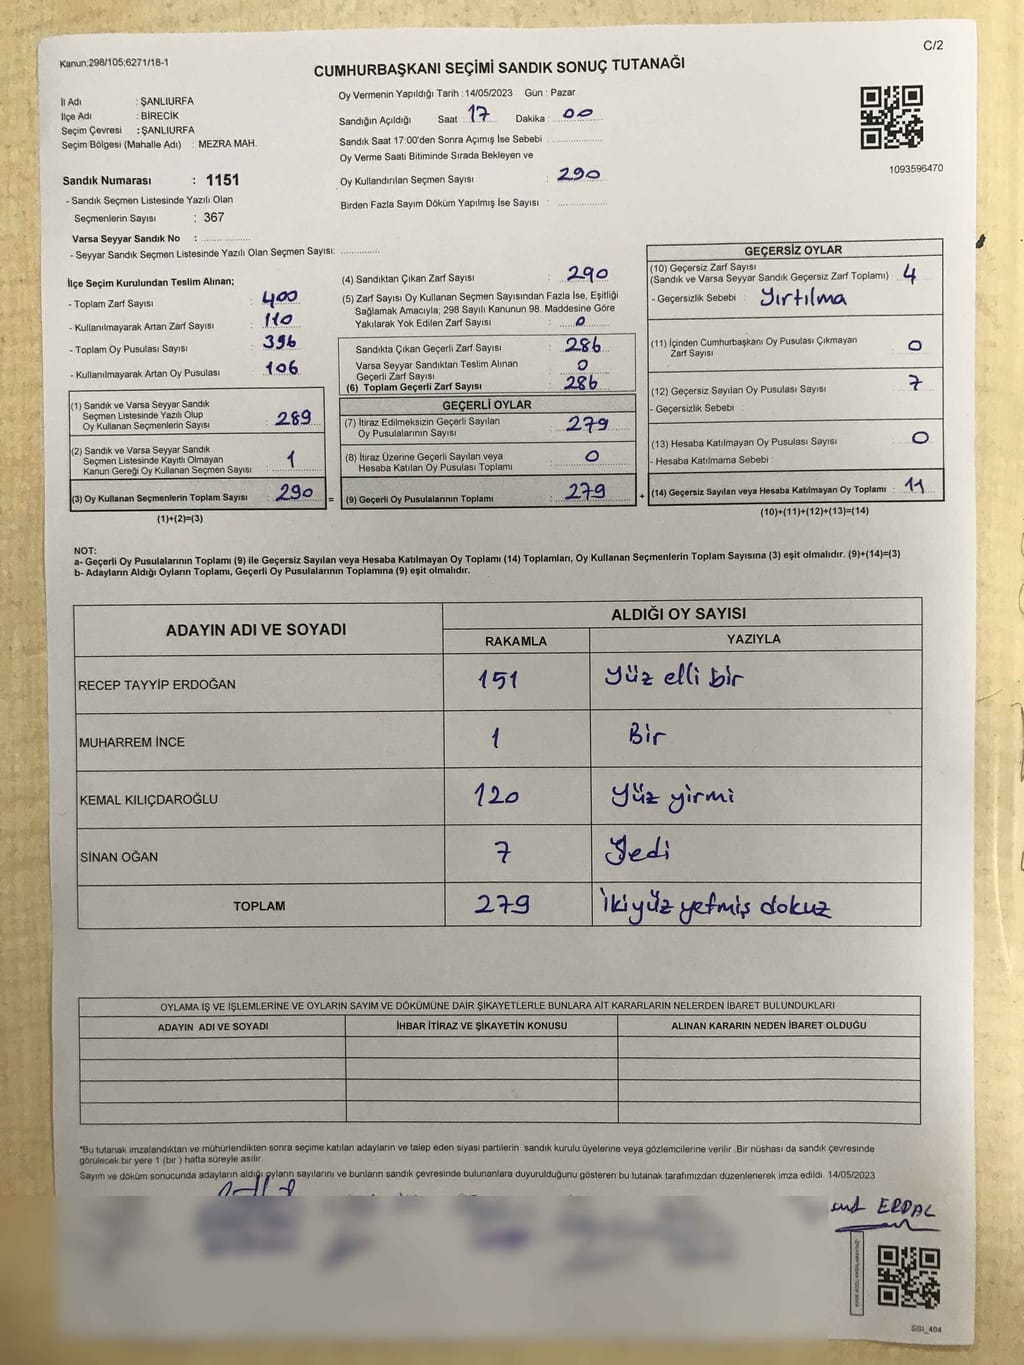 Kanun:298/105;6271/18-1
C/2
CUMHURBAŞKANI SEÇİMİ SANDIK SONUÇ TUTANAĞI
İl Adı : ŞANLIURFA
İlçe Adı : BİRECİK
Seçim Çevresi : ŞANLIURFA
Seçim Bölgesi (Mahalle Adı) : MEZRA MAH.
Sandık Numarası : 1151
- Sandık Seçmen Listesinde Yazılı Olan
Seçmenlerin Sayısı : 367
Varsa Seyyar Sandık No :
- Seyyar Sandık Seçmen Listesinde Yazılı Olan Seçmen Sayısı:
Oy Vermenin Yapıldığı Tarih : 14/05/2023 Gün : Pazar
Sandığın Açıldığı Saat : 17 Dakika : 00
Sandık Saat 17:00'den Sonra Açımış İse Sebebi :
Oy Verme Saati Bitiminde Sırada Bekleyen ve
Oy Kullandırılan Seçmen Sayısı : 290
Birden Fazla Sayım Döküm Yapılmış İse Sayısı :
1093596470
İlçe Seçim Kurulundan Teslim Alınan;
- Toplam Zarf Sayısı : 400
- Kullanılmayarak Artan Zarf Sayısı : 110
- Toplam Oy Pusulası Sayısı : 396
- Kullanılmayarak Artan Oy Pusulası : 106
(1) Sandık ve Varsa Seyyar Sandık
Seçmen Listesinde Yazılı Olup
Oy Kullanan Seçmenlerin Sayısı : 289
(2) Sandık ve Varsa Seyyar Sandık
Seçmen Listesinde Kayıtlı Olmayan
Kanun Gereği Oy Kullanan Seçmen Sayısı : 1
(3) Oy Kullanan Seçmenlerin Toplam Sayısı : 290 =
(1)+(2)=(3)
(4) Sandıktan Çıkan Zarf Sayısı : 290
(5) Zarf Sayısı Oy Kullanan Seçmen Sayısından Fazla İse, Eşitliği
Sağlamak Amacıyla; 298 Sayılı Kanunun 98. Maddesine Göre
Yakılarak Yok Edilen Zarf Sayısı : 0
Sandıkta Çıkan Geçerli Zarf Sayısı : 286
Varsa Seyyar Sandıktan Teslim Alınan
Geçerli Zarf Sayısı : 0
(6) Toplam Geçerli Zarf Sayısı : 286
GEÇERLİ OYLAR
(7) İtiraz Edilmeksizin Geçerli Sayılan
Oy Pusulalarının Sayısı : 279
(8) İtiraz Üzerine Geçerli Sayılan veya
Hesaba Katılan Oy Pusulası Toplamı : 0
(9) Geçerli Oy Pusulalarının Toplamı : 279 +
GEÇERSİZ OYLAR
(10) Geçersiz Zarf Sayısı
(Sandık ve Varsa Seyyar Sandık Geçersiz Zarf Toplamı) : 4
- Geçersizlik Sebebi : Yırtılma
(11) İçinden Cumhurbaşkanı Oy Pusulası Çıkmayan
Zarf Sayısı : 0
(12) Geçersiz Sayılan Oy Pusulası Sayısı : 7
- Geçersizlik Sebebi :
(13) Hesaba Katılmayan Oy Pusulası Sayısı : 0
- Hesaba Katılmama Sebebi :
(14) Geçersiz Sayılan veya Hesaba Katılmayan Oy Toplamı : 11
(10)+(11)+(12)+(13)=(14)
NOT:
a- Geçerli Oy Pusulalarının Toplamı (9) ile Geçersiz Sayılan veya Hesaba Katılmayan Oy Toplamı (14) Toplamları, Oy Kullanan Seçmenlerin Toplam Sayısına (3) eşit olmalıdır. (9)+(14)=(3)
b- Adayların Aldığı Oyların Toplamı, Geçerli Oy Pusulalarının Toplamına (9) eşit olmalıdır.
ADAYIN ADI VE SOYADI ALDIĞI OY SAYISI
RAKAMLA YAZIYLA
RECEP TAYYİP ERDOĞAN 151 Yüz elli bir
MUHARREM İNCE 1 Bir
KEMAL KILIÇDAROĞLU 120 Yüz yirmi
SİNAN OĞAN 7 Yedi
TOPLAM 279 İkiyüz yetmiş dokuz
OYLAMA İŞ VE İŞLEMLERİNE VE OYLARIN SAYIM VE DÖKÜMÜNE DAİR ŞİKAYETLERLE BUNLARA AİT KARARLARIN NELERDEN İBARET BULUNDUKLARI
ADAYIN ADI VE SOYADI İHBAR İTİRAZ VE ŞİKAYETİN KONUSU ALINAN KARARIN NEDEN İBARET OLDUĞU
*Bu tutanak imzalandıktan ve mühürlendikten sonra seçime katılan adayların ve talep eden siyasi partilerin sandık kurulu üyelerine veya gözlemcilerine verilir. Bir nüshası da sandık çevresinde
görülecek bir yere 1 (bir) hafta süreyle asılır.
Sayım ve döküm sonucunda adayların aldığı oyların sayılarını ve bunların sandık çevresinde bulunanlara duyurulduğunu gösteren bu tutanak tarafımızdan düzenlenerek imza edildi. 14/05/2023
ERDAL
SBI_404